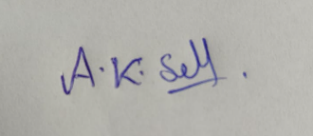 A.K. Sell.